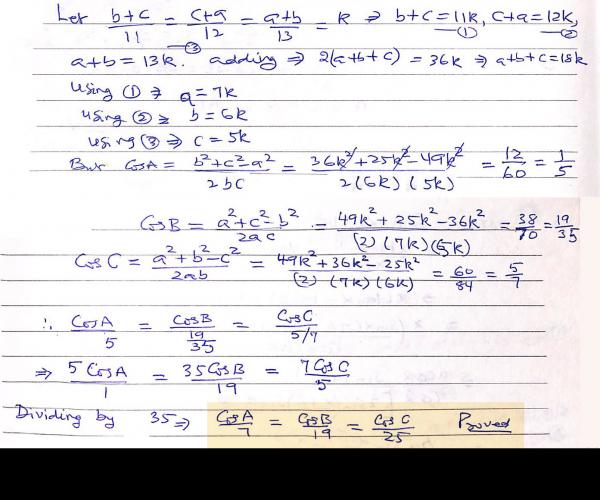 Let b+c/11 = c+a/12 = a+b/13 = k ⇒ b+c = 11k, c+a = 12k,
① ②
a+b = 13k. ③ adding ⇒ 2(a+b+c) = 36k ⇒ a+b+c = 18k
Using ① ⇒ a = 7k
using ② ⇒ b = 6k
using ③ ⇒ c = 5k
But CosA = b²+c²-a²/2bc = 36k²+25k²-49k²/2(6k)(5k) = 12/60 = 1/5
CosB = a²+c²-b²/2ac = 49k²+25k²-36k²/(2)(7k)(5k) = 38/70 = 19/35
CosC = a²+b²-c²/2ab = 49k²+36k²-25k²/(2)(7k)(6k) = 60/84 = 5/7
∴ CosA/5 = CosB/19/35 = CosC/5/7
⇒ 5CosA/1 = 35CosB/19 = 7CosC/5
Dividing by 35 ⇒ CosA/7 = CosB/19 = CosC/25 Proved